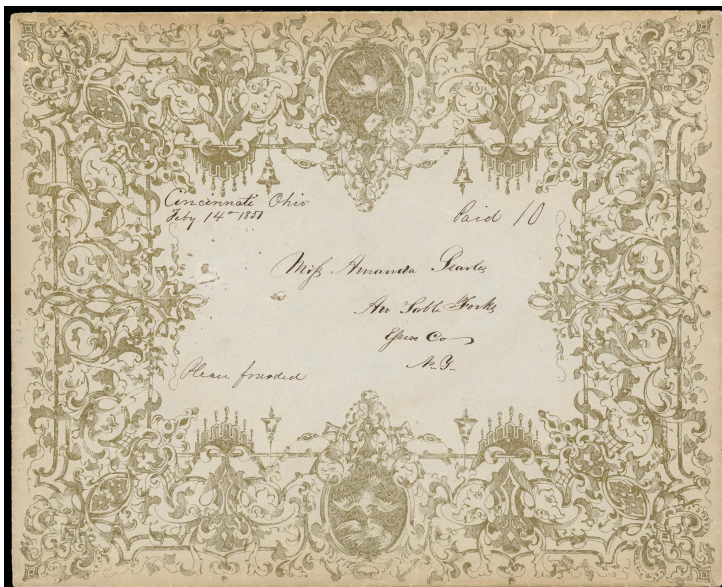 Cincinnati Ohio
Feby 14th 1851
Paid 10
Miss Amanda Searles
Au Sable Forks
Essex Co
N.Y.
Please forwarded